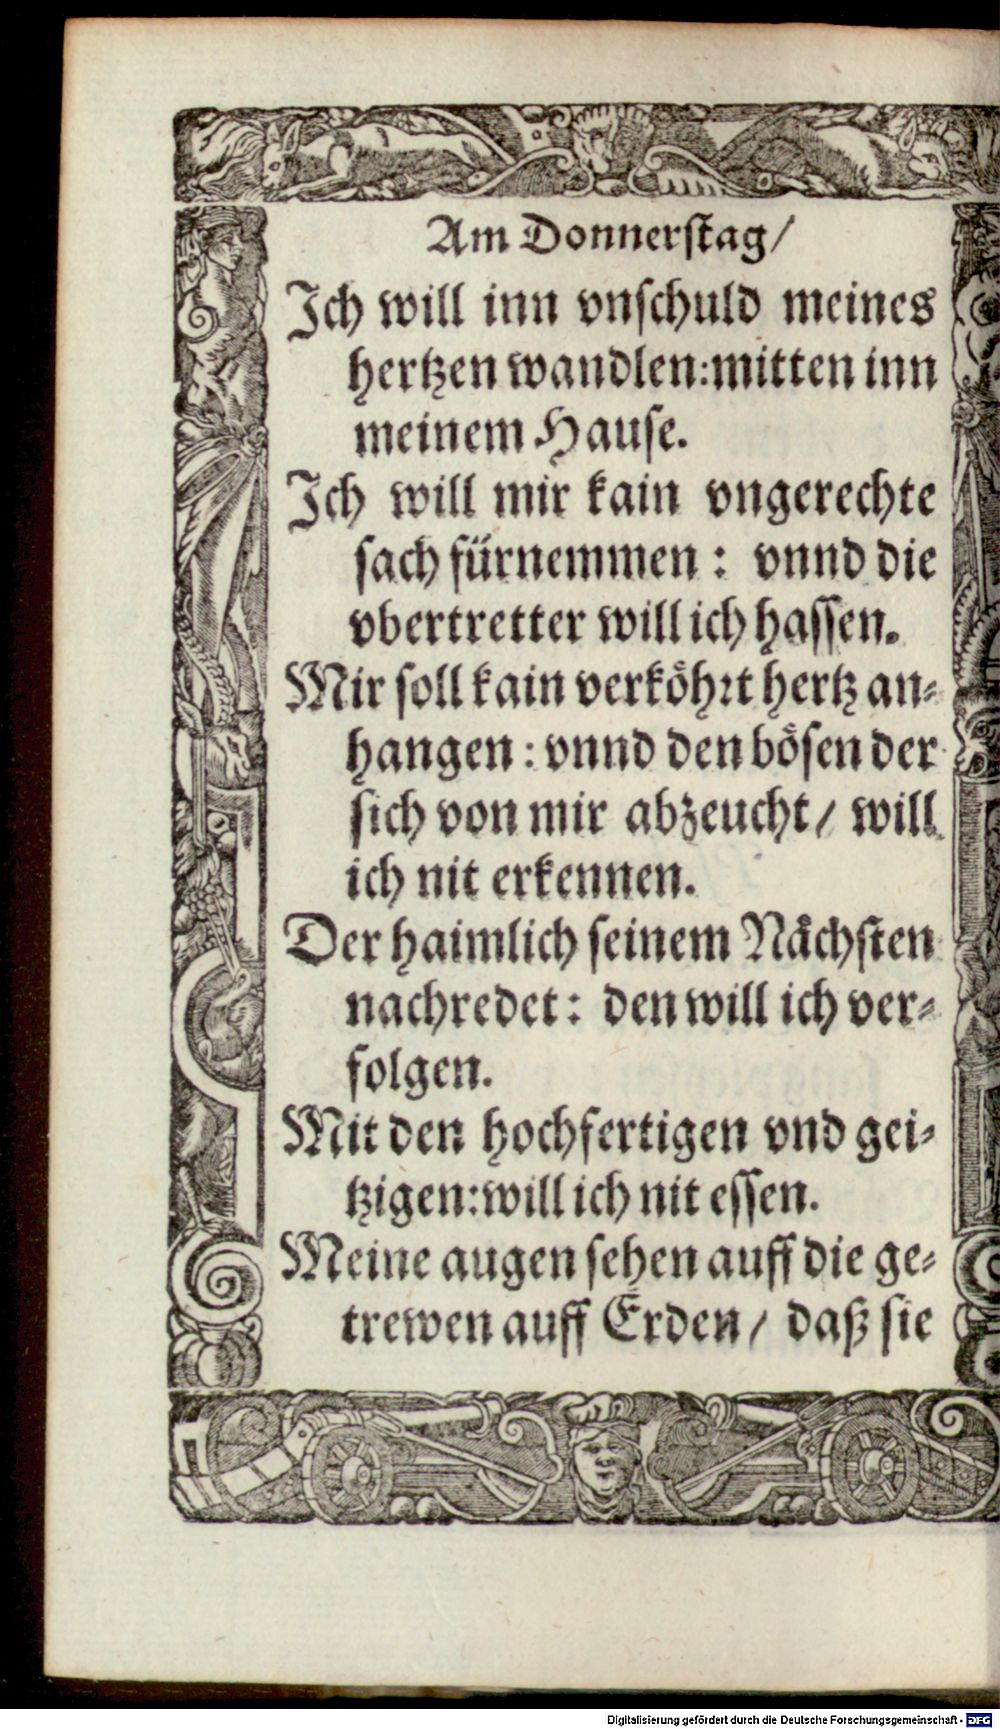 Am Donnerstag/
Ich will inn vnschuld meines
hertzen wandlen: mitten inn
meinem Hause.
Ich will mir kain vngerechte
sach fürnemmen : vnnd die
vbertretter will ich hassen.
Mir soll kain verköhrt hertz an⸗
hangen : vnnd den bösen der
sich von mir abzeucht / will
ich nit erkennen.
Der haimlich seinem Nächsten
nachredet : den will ich ver⸗
folgen.
Mit den hochfertigen vnd gei⸗
tzigen: will ich nit essen.
Meine augen sehen auff die ge⸗
trewen auff Erden / daß sie
Digitalisierung gefördert durch die Deutsche Forschungsgemeinschaft - DFG